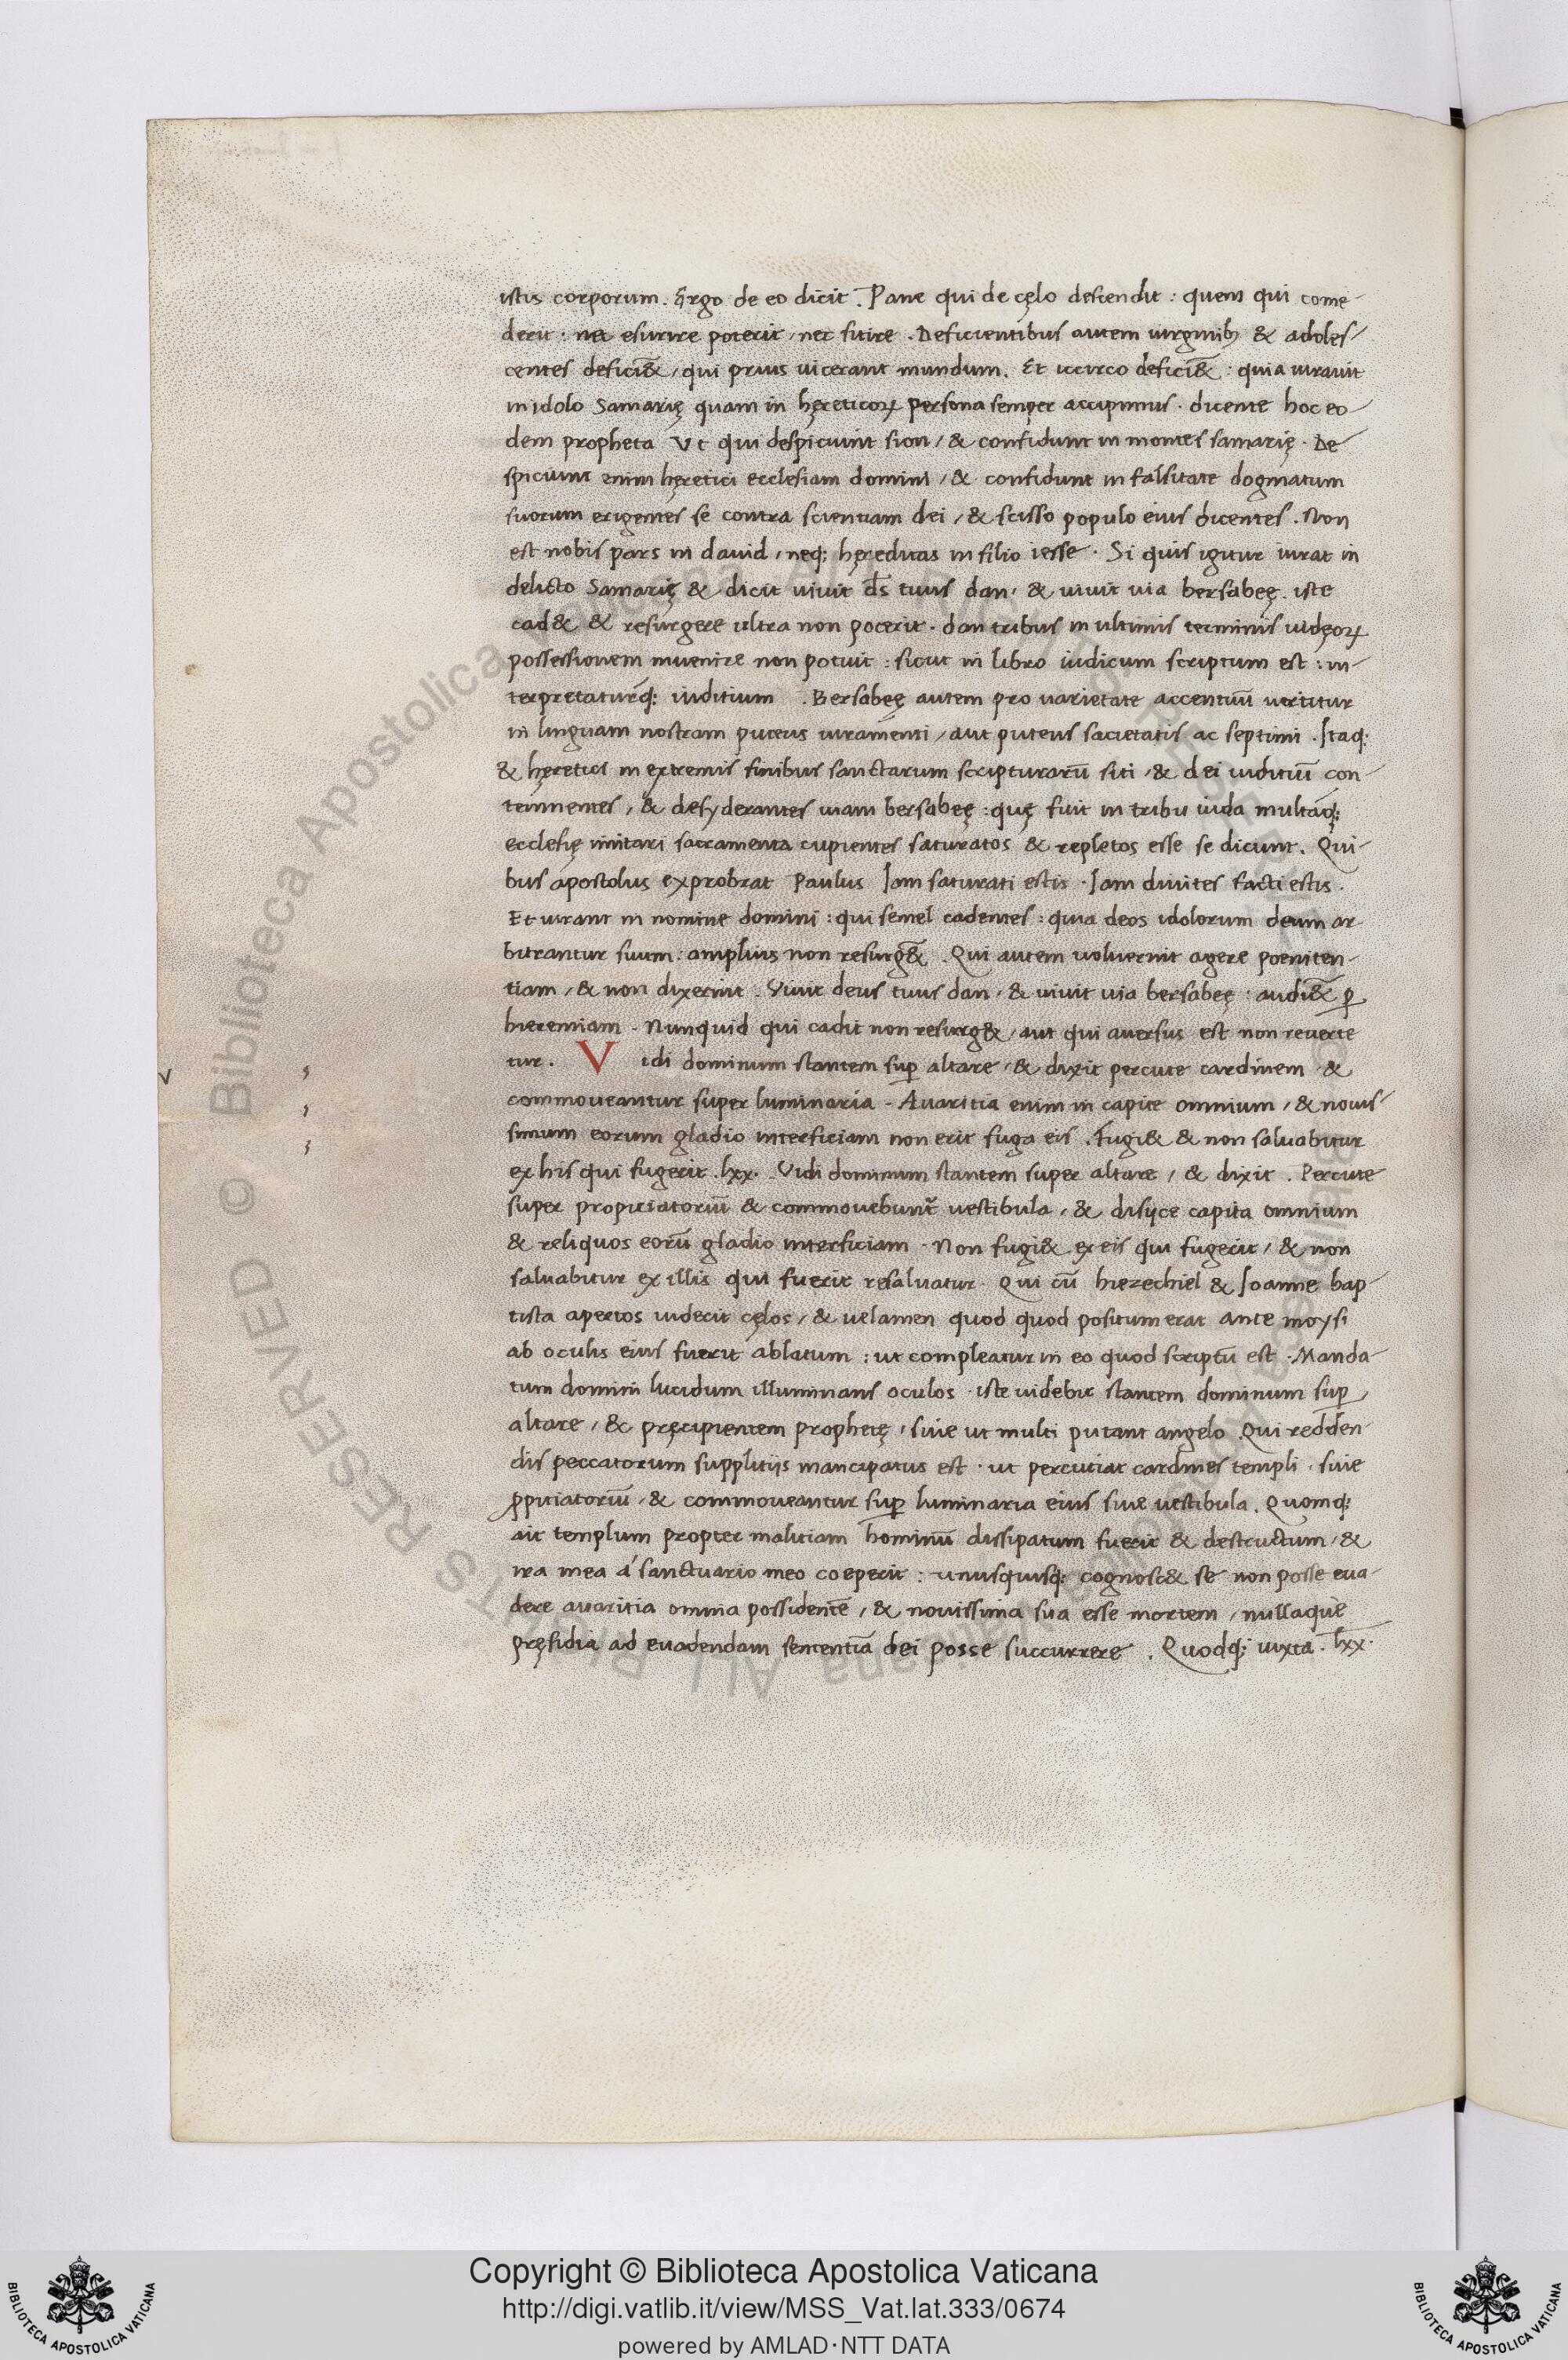 istis corporum. Ergo de eo dicit. Pane qui de cęlo descendit : quem qui come-
derit : nec esurire poterit, nec sitire. Deficientibus autem uirginib; & adoles-
centes defici&̄, qui prius uicerant mundum. Et iccirco defici&̄ : quia iurauit
in idolo Samarię quam in hęreticoꝝ persona semper accipimus. dicente hoc eo-
dem propheta Vt qui despiciunt sion, & confidunt in montes samarię. De-
spiciunt enim hęretici ecclesiam domini, & confidunt in falsitate dogmatum
suorum erigentes se contra scientiam dei, & scisso populo eius dicentes. Non
est nobis pars in dauid, neq; hęreditas in filio iesse. Si quis igitur iurat in
delicto Samarię & dicit uiuit d̄s tuus dan, & uiuit uia bersabeę. iste
cad& & resurgere ultra non poterit. dan tribus in ultimis terminis iudęoꝝ
possessionem inuenire non potuit : sicut in libro iudicum scriptum est : in-
terpretaturq; iuditium. Bersabeę autem pro uarietate accentuū uertitur
in linguam nostram puteus iuramenti, aut puteus sacietatis ac septimi. Itaq;
& hęretici in extremis finibus sanctarum scripturarū siti, & dei iuditiū con-
temnentes, & desyderantes uiam bersabeę : quę fuit in tribu iuda multaq;
ecclesię imitari sacramenta cupientes saturatos & repletos esse se dicunt. Qui-
bus apostolus exprobrat Paulus Iam saturati estis. Iam diuites facti estis.
Et iurant in nomine domini : qui semel cadentes : quia deos idolorum deum ar
bitrantur suum : amplius non resurg&̄. Qui autem uoluerint agere poeniten-
tiam, & non dixerint. Viuit deus tuus dan, & uiuit uia bersabeę : audi&̄ ꝑ
hieremiam. Nunquid qui cadit non resurg&, aut qui auersus est non reuerte
tur. Vidi dominum stantem suꝑ altare, & dixit percute cardinem &
commoueantur super luminaria. Auaritia enim in capite omnium, & nouis-
simum eorum gladio interficiam non erit fuga eis. Fugi& & non saluabitur
ex his qui fugerit. lxx. Vidi dominum stantem super altare, & dixit. Percute
super propiciatoriū & commouebunt᷑ uestibula, & disijce capita omnium
& reliquos eorū gladio interficiam. Non fugi& ex eis qui fugerit, & non
saluabitur ex illis qui fuerit resaluatur. Qui cū hiezechiel & Ioanne bap-
tista apertos uiderit cęlos, & uelamen quod quod positum erat ante moysi
ab oculis eius fuerit ablatum : ut compleatur in eo quod scriptū est. Manda-
tum domini lucidum illuminans oculos. iste uidebit stantem dominum suꝑ
altare, & pręcipientem prophetę, siue ut multi putant angelo. Qui redden-
dis peccatorum supplitijs mancipatus est. ut percutiat cardines templi. siue
ꝓpitiatoriū, & commoueantur suꝑ luminaria eius siue uestibula. Quomq;
ait templum propter malitiam hominū dissipatum fuerit & destructum, &
ira mea á sanctuario meo coeperit : unusquisq; cognosc& se non posse eua-
dere auaritia omnia possidentē, & nouissima sua esse mortem, nullaque
pręsidia ad euadendam sententiā dei posse succurrere. Quodq; iuxta. lxx.
Copyright © Biblioteca Apostolica Vaticana
http://digi.vatlib.it/view/MSS_Vat.lat.333/0674
powered by AMLAD·NTT DATA